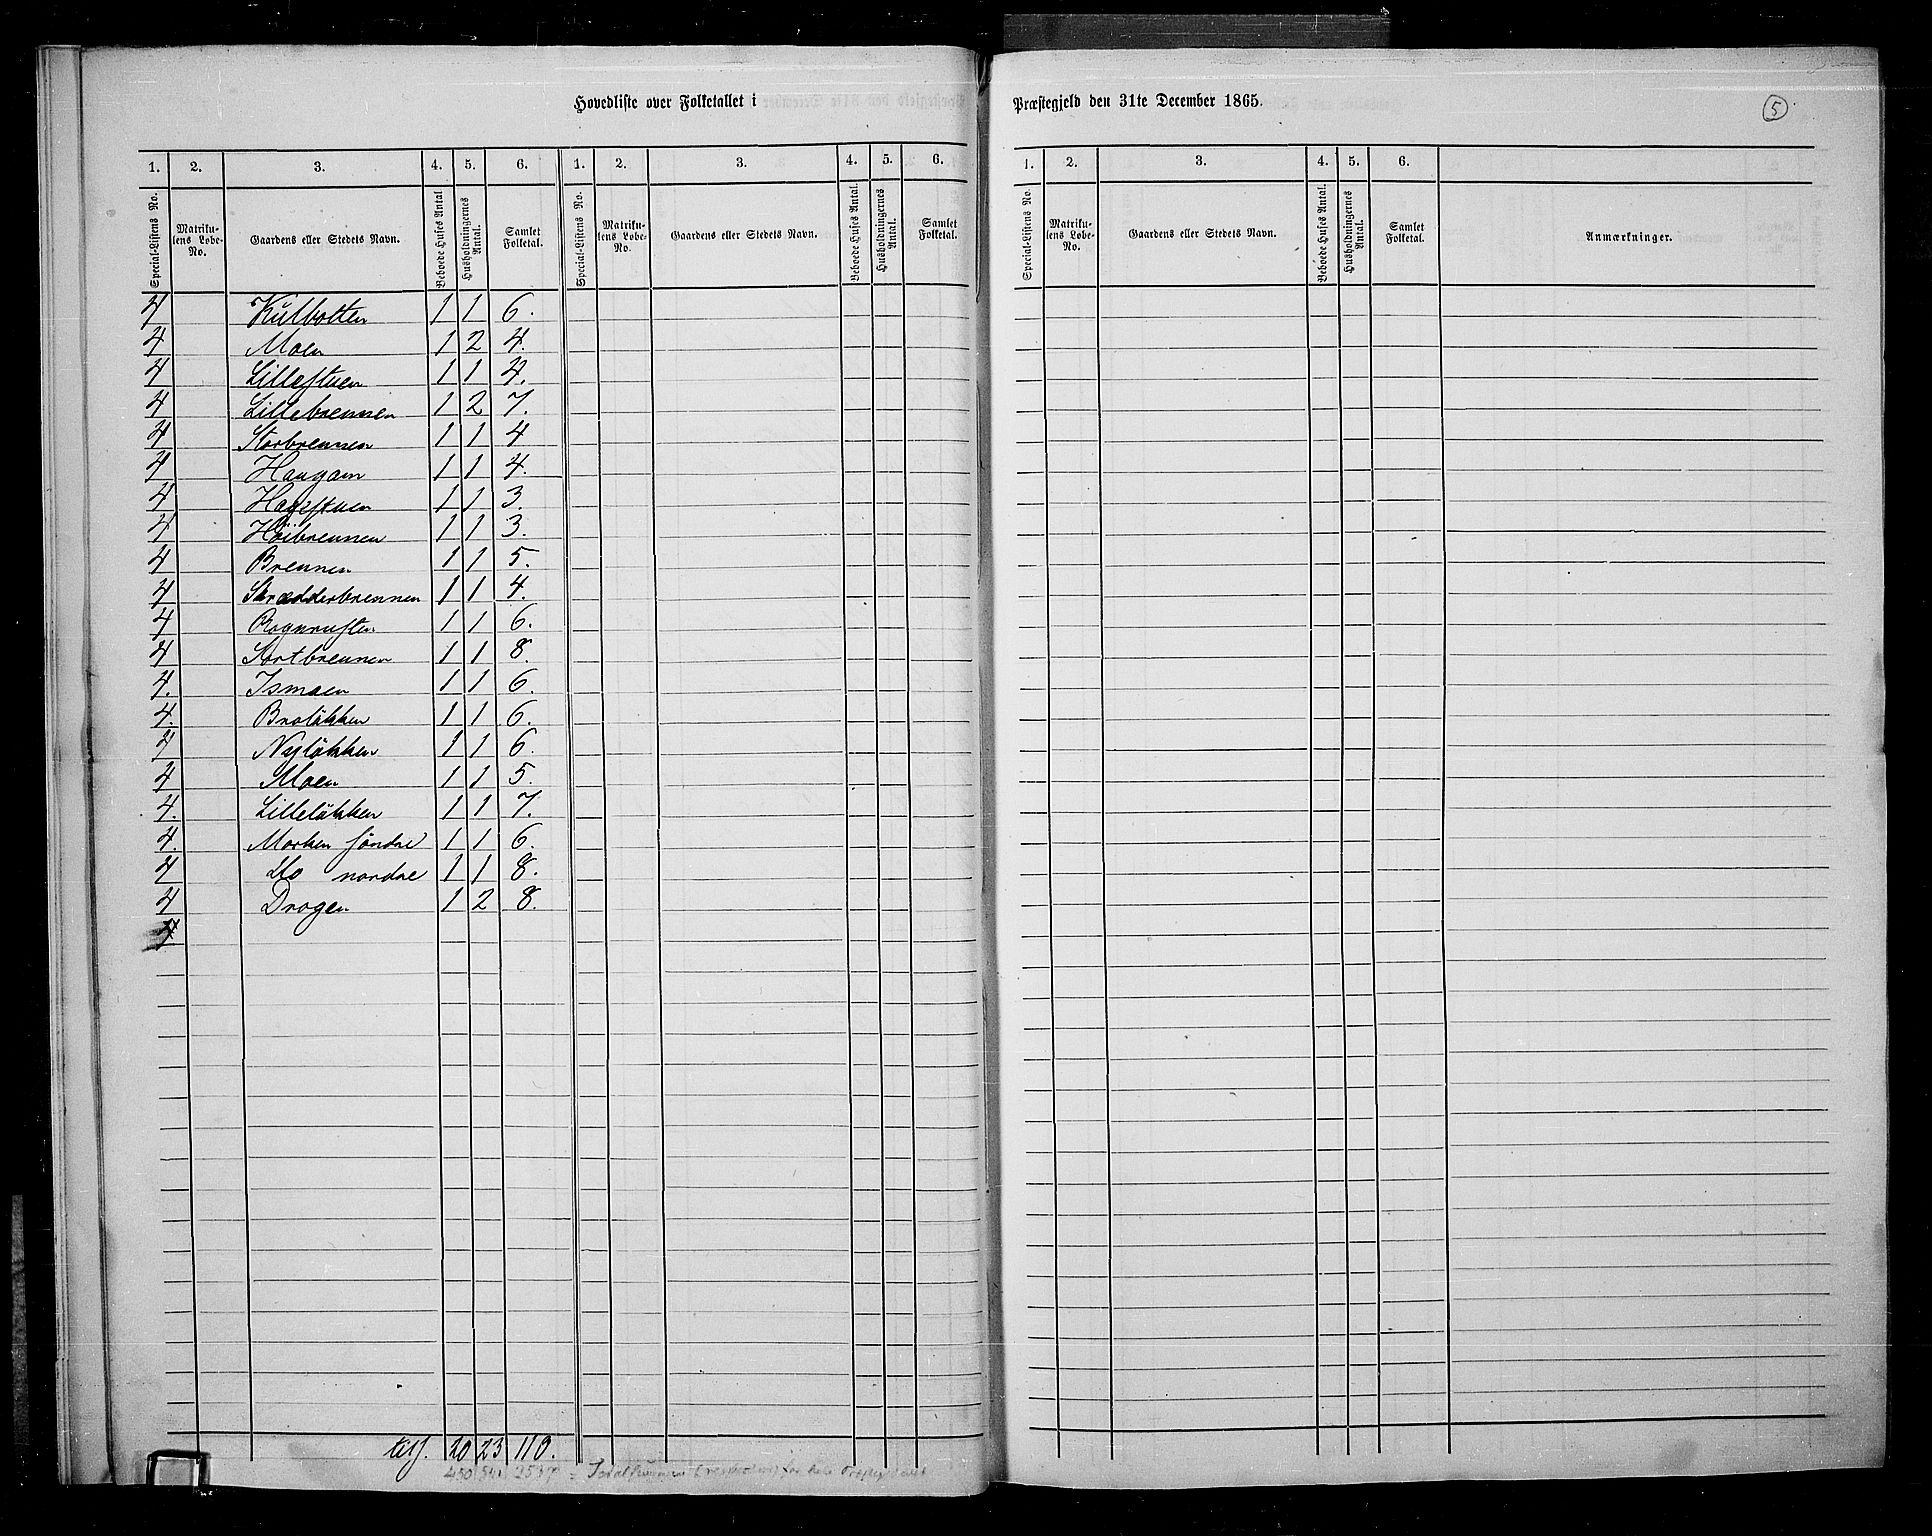 Hovedliste over Folketallet i Præstegjeld den 31te December 1865.
5
1. 2. 3. 4. 5. 6. 1. 2. 3. 4. 5. 6. 1. 2. 3. 4. 5. 6.
Special-Listens No. Matrikulens Løbe-No. Gaardens eller Stedets Navn. Beboede Huses Antal Husholdningernes Antal. Samlet Folketal. Special-Listens No. Matrikulens Løbe-No. Gaardens eller Stedets Navn. Beboede Huses Antal. Husholdningernes Antal. Samlet Folketal. Special-Listens No. Matrikulens Løbe-No. Gaardens eller Stedets Navn. Beboede Huses Antal. Husholdningernes Antal. Samlet Folketal. Anmærkninger.
4 Kulbotten 1 1 6.
4 Moen 1 2 4.
4 Lillestuen 1 1 4.
4 Lillebrennen 1 2 7.
4 Storbrennen 1 1 4
4 Haugam 1 1 4.
4 Hagestuen 1 1 3.
4 Höibrennen 1 1 3.
4 Brennen 1 1 5.
4 Skrædderbrennen 1 1 4.
4 Rognrusten 1 1 6.
4 Sortbrennen 1 1 8.
4. Ismoen 1 1 6.
4. Brolökken 1 1 6.
4 Nylökken 1 1 6.
4 Moen 1 1 5.
4. Lillelökken 1 1 7.
4. Morken söndre 1 1 6.
4 do nordre 1 1 8.
4 Drogen 1 2 8.
4
20 23 110.
450 541 2537 = for hele Præstegjeldet